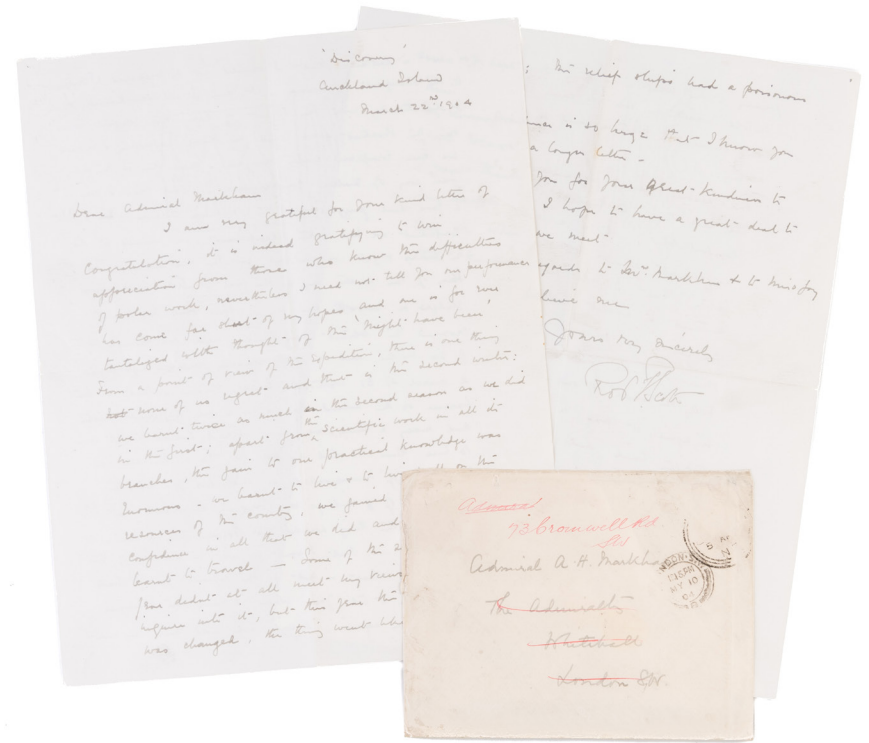 'Discovery'
Auckland Island
March 22nd 1904
Dear Admiral Markham
I am very grateful for your kind letter of
Congratulation, it is indeed gratifying to win
appreciation from those who know the difficulties
of polar work, nevertheless I need not tell you our performance
has come far short of my hopes and one is for ever
tantalized with thought of the 'Might have been'
From a point of view of the Expedition, there is one thing
none of us regret and that is the second winter:
we learnt twice as much in the second season as we did
in the first; apart from the scientific work in all its
branches, the gain to our practical knowledge was
enormous - we learnt to live & to live on the
resources of the country, we gained
confidence in all that we did and
learnt to travel - Some of the
year didn't at all meet my views
into it, but this year the
was changed, the thing went
: the relief ships had a poisonous
is so large that I know you
a longer letter -
you for your great kindness to
I hope to have a great deal to
we meet
to Mrs. Markham & to Miss Joy
believe me
Yours very sincerely
Rob F Scott
73 Cromwell Rd
Admiral A. H. Markham
The Admiralty
Whitehall
London S.W.
MY 10
04